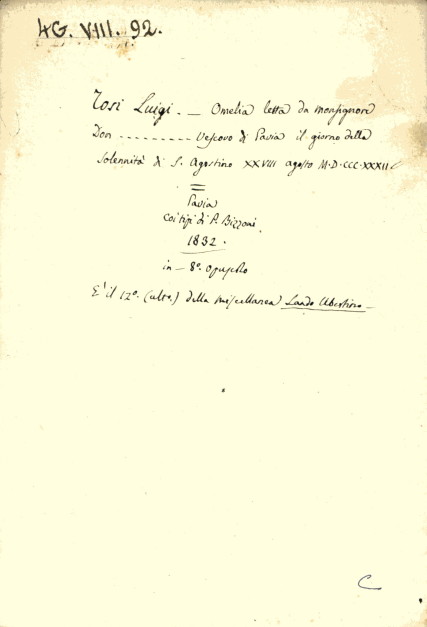 4G. VIII. 92.
Tosi Luigi. — Omelia letta da monsignore
Don .......... Vescovo di Pavia il giorno della
Solennità di S. Agostino XXVIII agosto M.D.CCC.XXXII
Pavia
coi tipi di P. Bizzoni.
1832.
in – 8°. opuscolo
E' il 12°. (ultº.) della miscellanea Lando Ubertino –
C